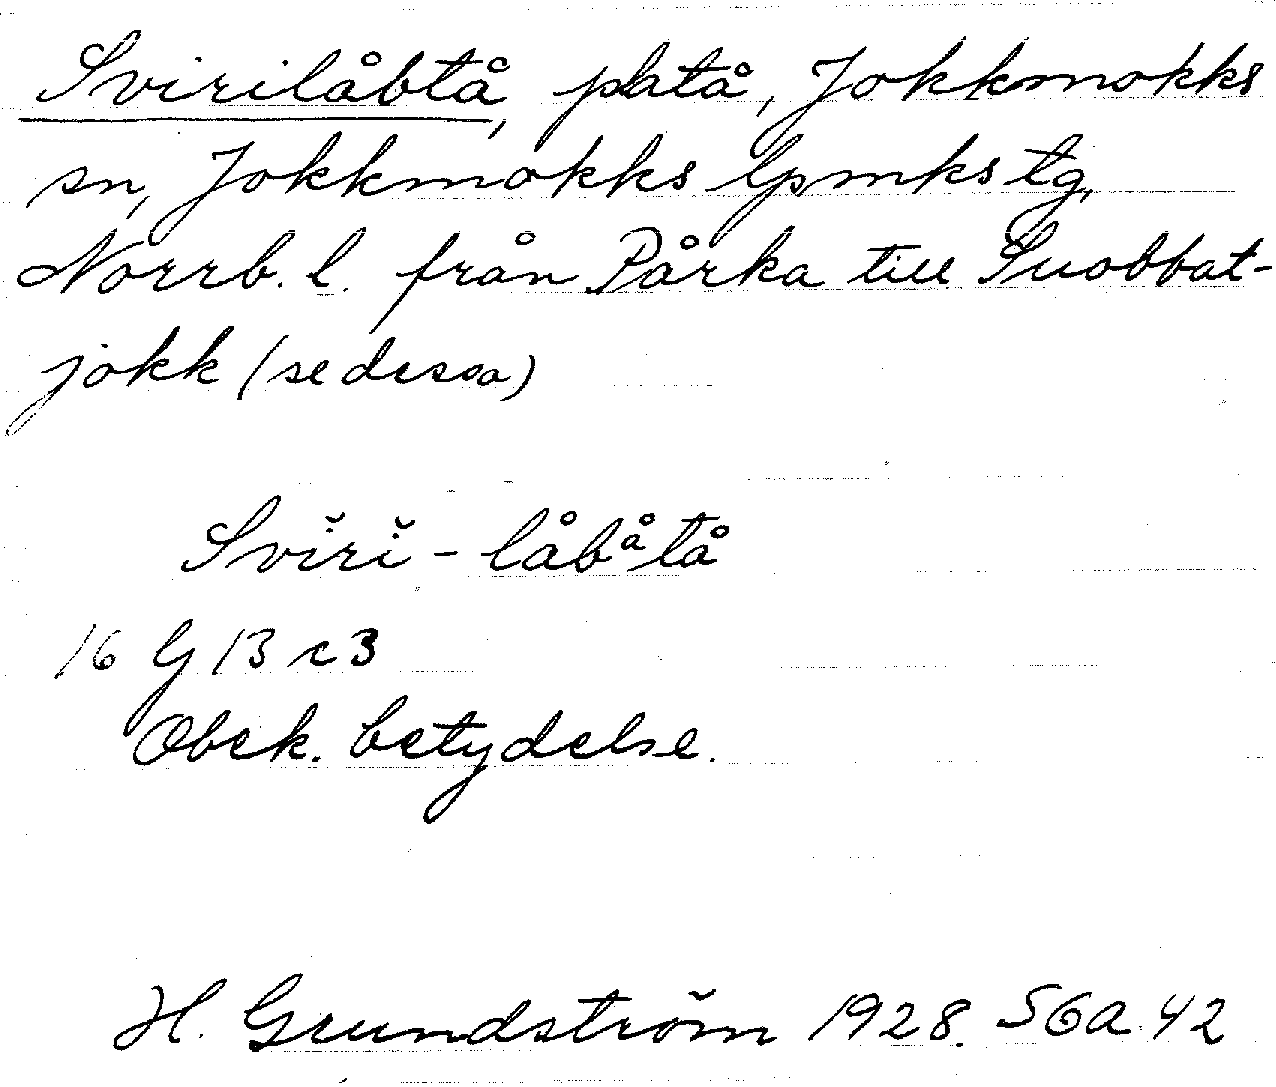 Svirilåbtå, platå, Jokkmokks
sn, Jokkmokks lpmks tg,
Norrb. l. från Pårka till Suobbat-
jokk (se dessa)
Svĭrĭ - låbåtå
16 G 13 c 3
Obek. betydelse.
H. Grundström 1928. SGa 42